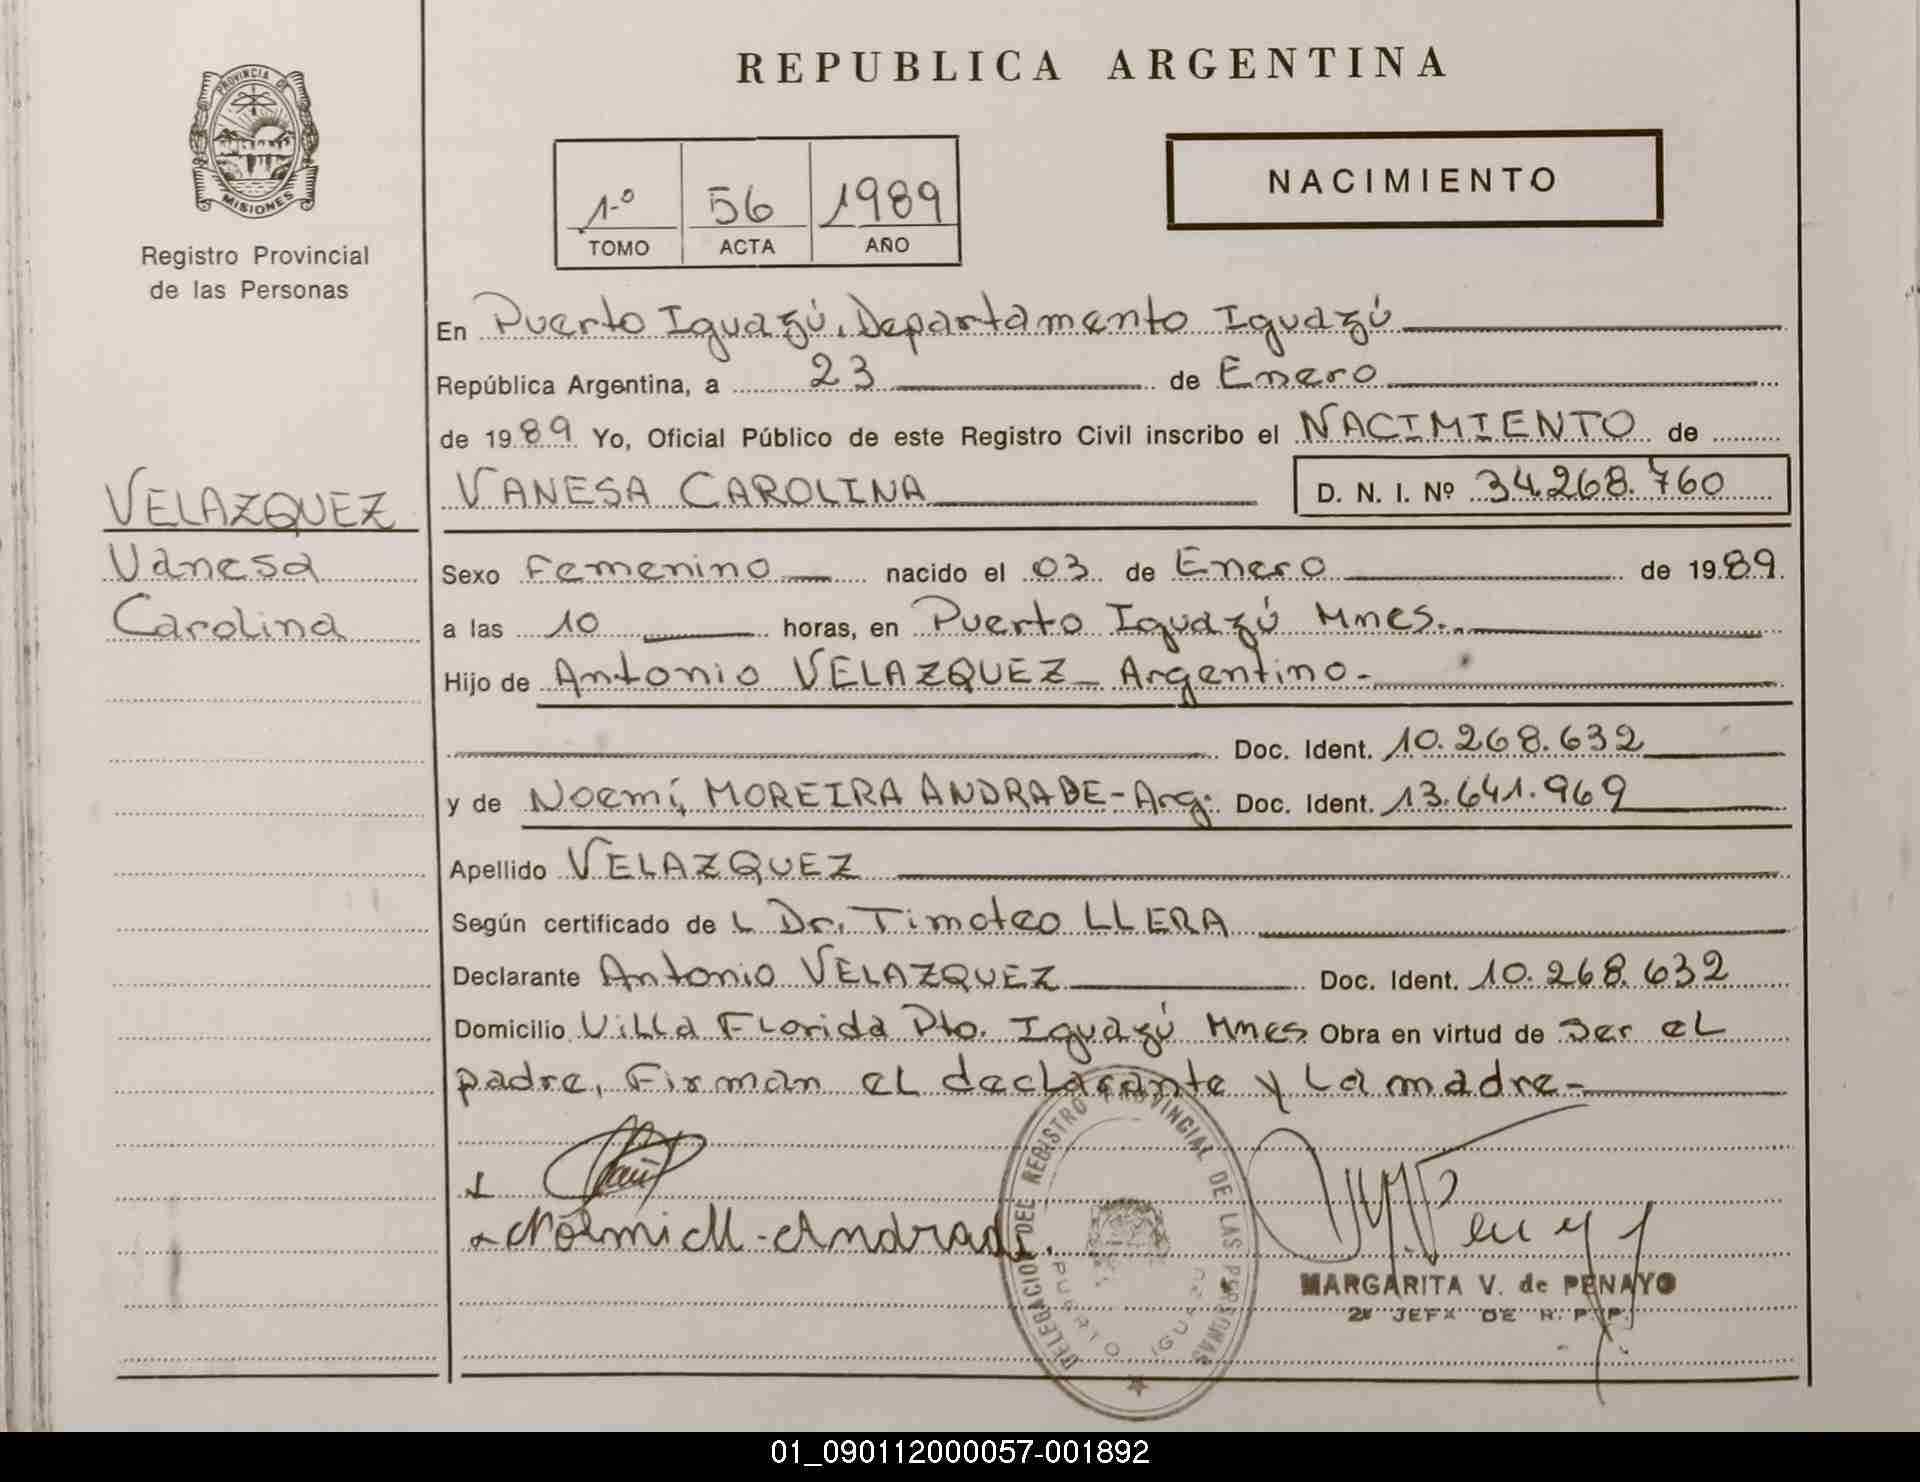 REPUBLICA ARGENTINA
PROVINCIA DE
MISIONES
Registro Provincial
de las Personas
1º 56 1989
TOMO ACTA AÑO
NACIMIENTO
En Puerto Iguazú, Departamento Iguazú
República Argentina, a 23 de Enero
de 1989 Yo, Oficial Público de este Registro Civil inscribo el NACIMIENTO de
VANESA CAROLINA D. N. I. Nº 34.268.760
VELAZQUEZ
Vanesa
Carolina
Sexo Femenino nacido el 03 de Enero de 1989.
a las 10 horas, en Puerto Iguazú Mnes.
Hijo de Antonio VELAZQUEZ - Argentino.-
Doc. Ident. 10.268.632
y de Noemí MOREIRA ANDRADE - Arg. Doc. Ident. 13.641.969
Apellido VELAZQUEZ
Según certificado de L Dr. Timoteo LLERA
Declarante Antonio VELAZQUEZ Doc. Ident. 10.268.632
Domicilio Villa Florida Pto. Iguazú Mnes Obra en virtud de ser el
padre, Firman el declarante y la madre-
DELEGACION DEL REGISTRO PROVINCIAL DE LAS PERSONAS
PUERTO IGUAZU
MARGARITA V. de PENAYO
2ª JEFA DE R. P. P.
01_090112000057-001892